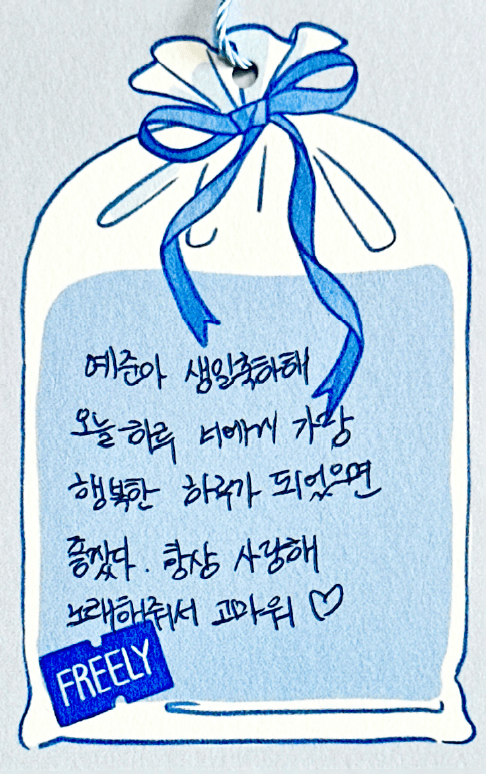 예준아 생일축하해
오늘 하루 너에게 가장
행복한 하루가 되었으면
좋겠다. 항상 사랑해
노래해줘서 고마워 ♡
FREELY